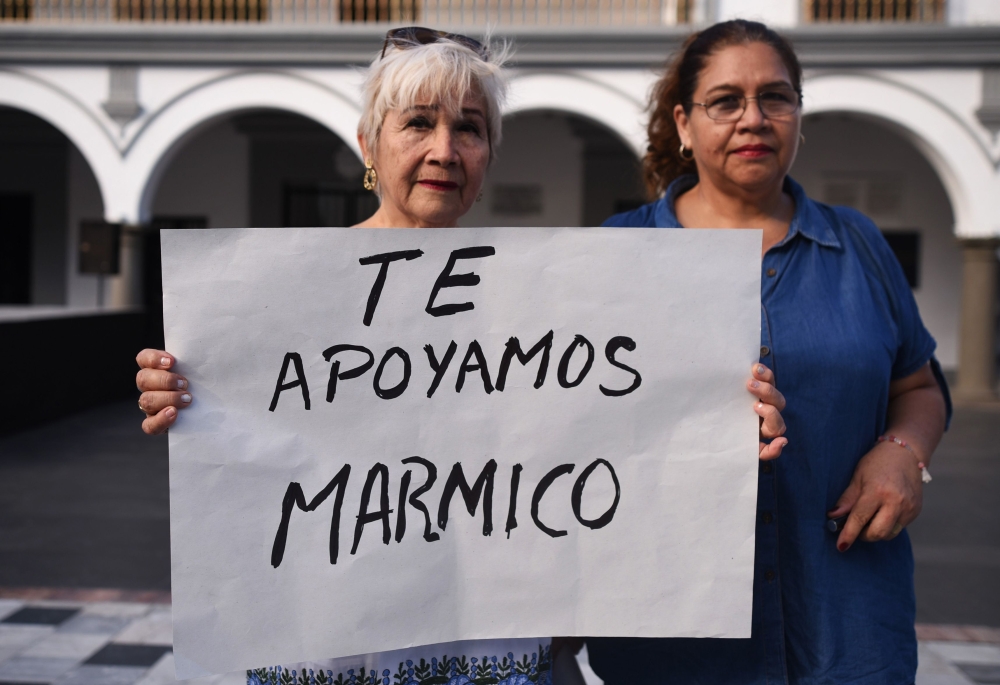 TE
APOYAMOS
MARMICO